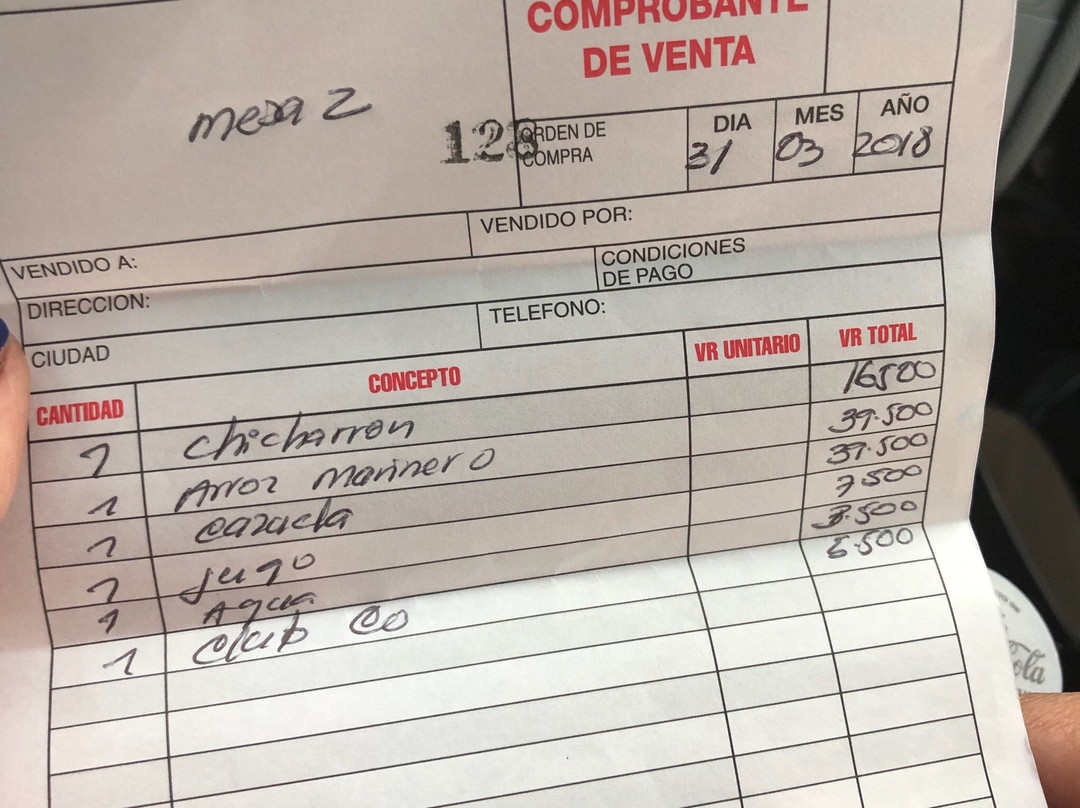 COMPROBANTE
DE VENTA
mesa 2
128
ORDEN DE
COMPRA
DIA
MES
AÑO
31
03
2018
VENDIDO A:
VENDIDO POR:
DIRECCION:
CONDICIONES
DE PAGO
CIUDAD
TELEFONO:
CANTIDAD CONCEPTO VR UNITARIO VR TOTAL
1 chicharron 16500
1 Arroz marinero 39.500
1 cazuela 37.500
1 jugo 7500
1 Agua 3.500
1 club Co 6.500